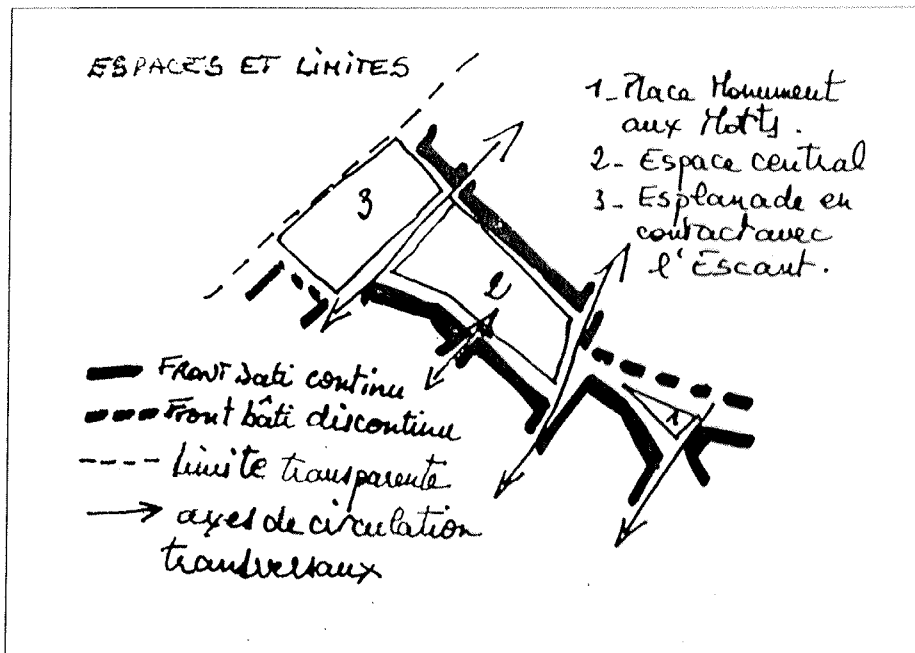 ESPACES ET LIMITES
1_ Place Monument
aux Morts.
2_ Espace central
3_ Esplanade en
contact avec
l'Escaut.
3
2
1
Front bati continu
Front bâti discontinu
limite transparente
axes de circulation
transversaux